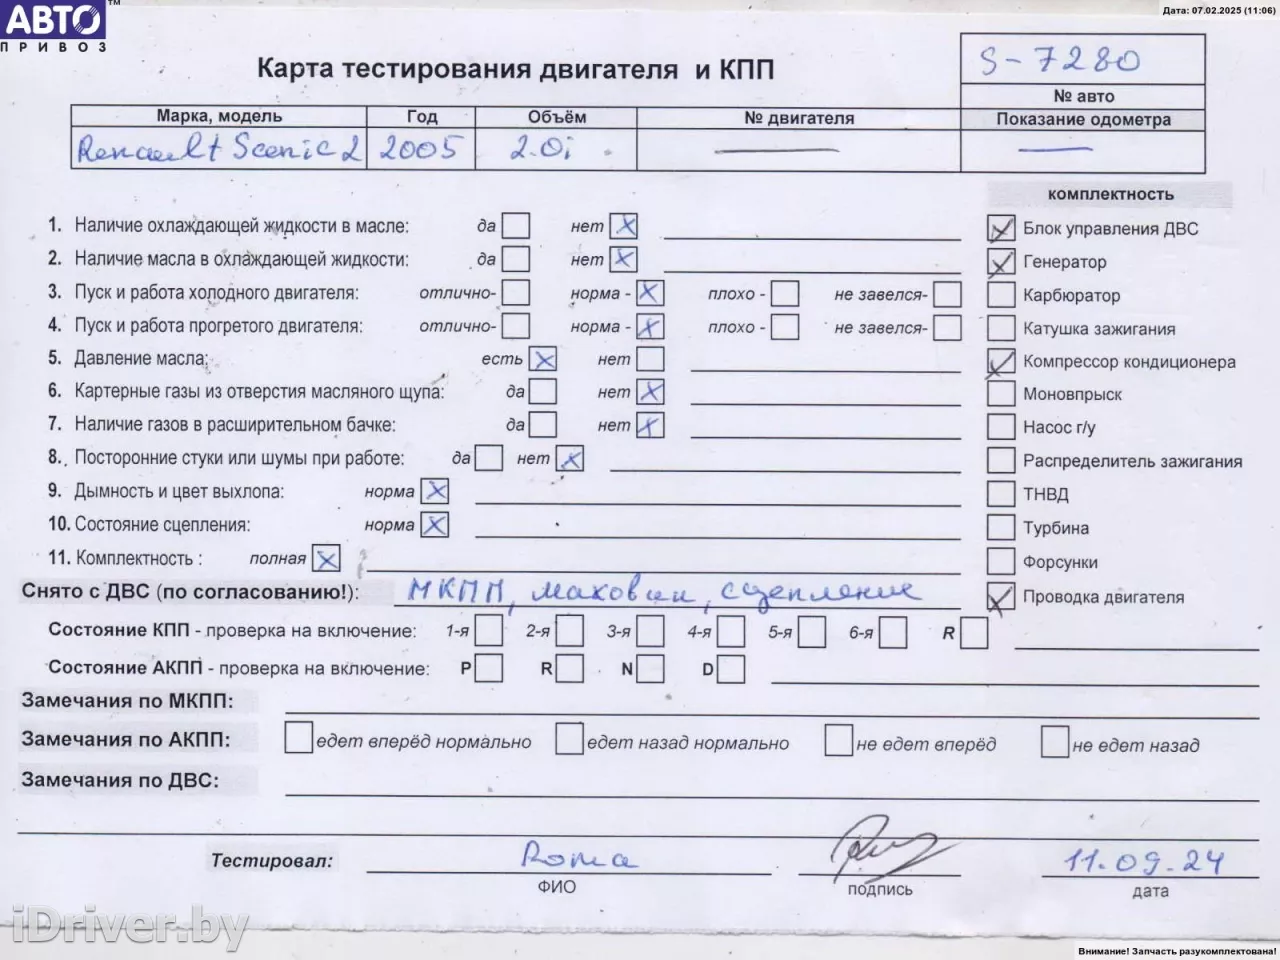 АВТО™
ПРИВОЗ
Дата: 07.02.2025 (11:06)
Карта тестирования двигателя и КПП
S-7280
№ авто
Марка, модель Год Объём № двигателя Показание одометра
Renault Scenic 2 2005 2.0i — —
комплектность
1. Наличие охлаждающей жидкости в масле: да нет X
2. Наличие масла в охлаждающей жидкости: да нет X
3. Пуск и работа холодного двигателя: отлично- норма - X плохо - не завелся-
4. Пуск и работа прогретого двигателя: отлично- норма - X плохо - не завелся-
5. Давление масла: есть X нет
6. Картерные газы из отверстия масляного щупа: да нет X
7. Наличие газов в расширительном бачке: да нет X
8. Посторонние стуки или шумы при работе: да нет X
9. Дымность и цвет выхлопа: норма X
10. Состояние сцепления: норма X
11. Комплектность : полная X
Блок управления ДВС
Генератор
Карбюратор
Катушка зажигания
Компрессор кондиционера
Моновпрыск
Насос г/у
Распределитель зажигания
ТНВД
Турбина
Форсунки
Проводка двигателя
Снято с ДВС (по согласованию!): МКПП, маховик, сцепление
Состояние КПП - проверка на включение: 1-я 2-я 3-я 4-я 5-я 6-я R
Состояние АКПП - проверка на включение: P R N D
Замечания по МКПП:
Замечания по АКПП: едет вперёд нормально едет назад нормально не едет вперёд не едет назад
Замечания по ДВС:
Тестировал: Roma 11.09.24
ФИО подпись дата
iDriver.by
Внимание! Запчасть разукомплектована!